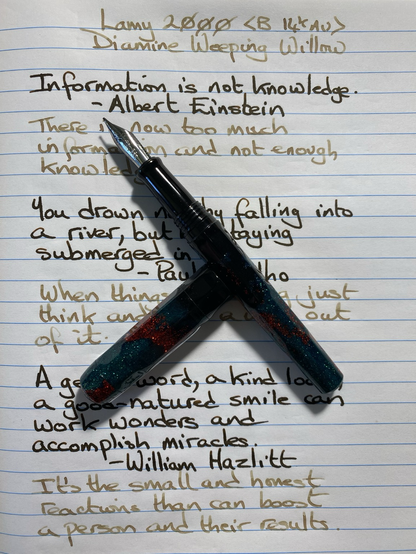 Lamy 2000 <B 14k AU>
Diamine Weeping Willow
Information is not knowledge.
- Albert Einstein
There now too much
and not enough
You drown by falling into
a river, but
submerged in
-
When just
think and out
of it.
A word, a kind
a good-natured smile can
work wonders and
accomplish miracles.
-William Hazlitt
It's the small and honest
reactions than can boost
a person and their results.